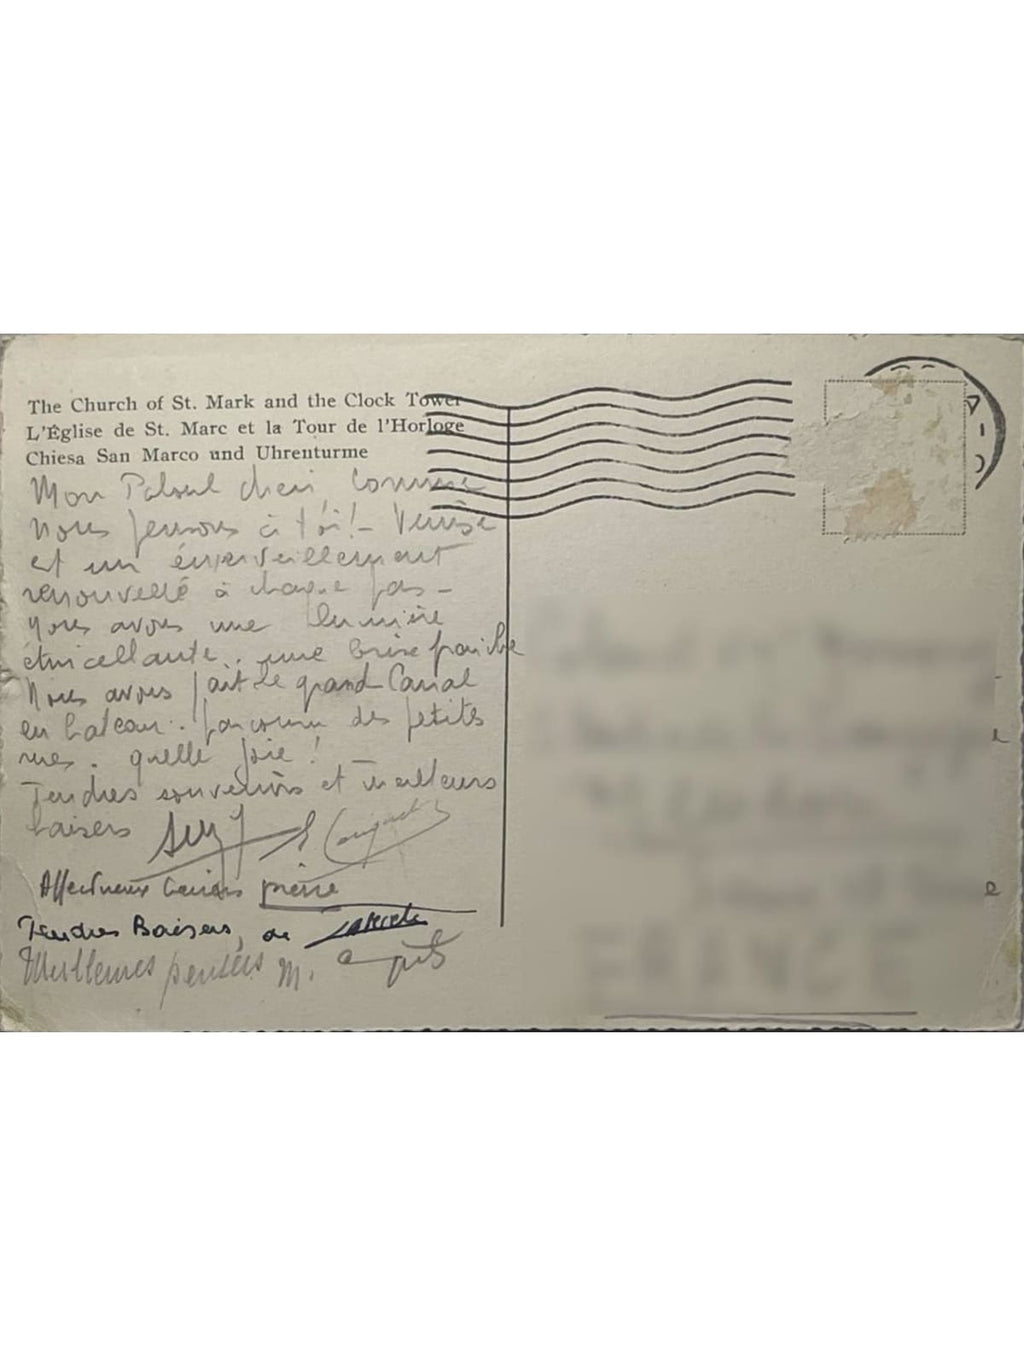 The Church of St. Mark and the Clock Tower
L'Église de St. Marc et la Tour de l'Horloge
Chiesa San Marco und Uhrenturme
Mon cheri, comme
nous pensons à toi! - Venise
est un émerveillement
renouvellé à chaque pas -
Nous avons une lumière
étincellante.. une brise fraiche
Nous avons fait le grand Canal
en bateau. parcouru des petites
rues. quelle joie!
Tendres souvenirs et meilleurs
baisers Suzy
Affectueux baisers pierre
Tendres Baisers, de
Meilleures pensées M.